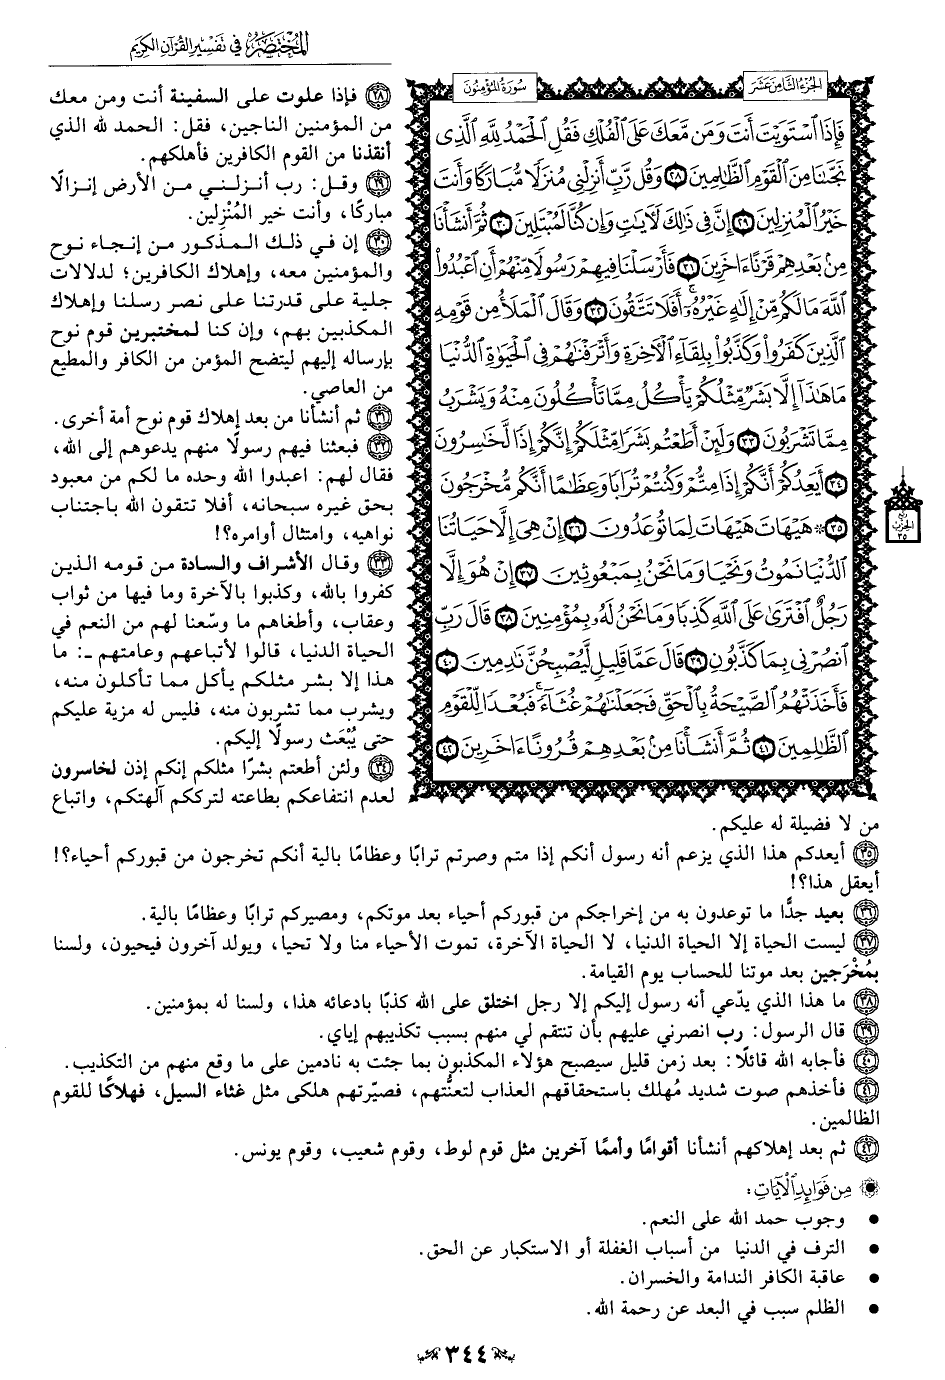 المختصر في تفسير القرآن الكريم
الجزء الثامن عشر
سورة المؤمنون
فَإِذَا ٱسْتَوَيْتَ أَنتَ وَمَن مَّعَكَ عَلَى ٱلْفُلْكِ فَقُلِ ٱلْحَمْدُ لِلَّهِ ٱلَّذِى
نَجَّىٰنَا مِنَ ٱلْقَوْمِ ٱلظَّٰلِمِينَ ٢٨ وَقُل رَّبِّ أَنزِلْنِى مُنزَلًا مُّبَارَكًا وَأَنتَ
خَيْرُ ٱلْمُنزِلِينَ ٢٩ إِنَّ فِى ذَٰلِكَ لَءَايَٰتٍ وَإِن كُنَّا لَمُبْتَلِينَ ٣٠ ثُمَّ أَنشَأْنَا
مِنۢ بَعْدِهِمْ قَرْنًا ءَاخَرِينَ ٣١ فَأَرْسَلْنَا فِيهِمْ رَسُولًا مِّنْهُمْ أَنِ ٱعْبُدُوا۟
ٱللَّهَ مَا لَكُم مِّنْ إِلَٰهٍ غَيْرُهُۥٓ أَفَلَا تَتَّقُونَ ٣٢ وَقَالَ ٱلْمَلَأُ مِن قَوْمِهِ
ٱلَّذِينَ كَفَرُوا۟ وَكَذَّبُوا۟ بِلِقَآءِ ٱلْءَاخِرَةِ وَأَتْرَفْنَٰهُمْ فِى ٱلْحَيَوٰةِ ٱلدُّنْيَا
مَا هَٰذَآ إِلَّا بَشَرٌ مِّثْلُكُمْ يَأْكُلُ مِمَّا تَأْكُلُونَ مِنْهُ وَيَشْرَبُ
مِمَّا تَشْرَبُونَ ٣٣ وَلَئِنْ أَطَعْتُم بَشَرًا مِّثْلَكُمْ إِنَّكُمْ إِذًا لَّخَٰسِرُونَ
٣٤ أَيَعِدُكُمْ أَنَّكُمْ إِذَا مِتُّمْ وَكُنتُمْ تُرَابًا وَعِظَٰمًا أَنَّكُم مُّخْرَجُونَ
٣٥ ۞ هَيْهَاتَ هَيْهَاتَ لِمَا تُوعَدُونَ ٣٦ إِنْ هِىَ إِلَّا حَيَاتُنَا
ٱلدُّنْيَا نَمُوتُ وَنَحْيَا وَمَا نَحْنُ بِمَبْعُوثِينَ ٣٧ إِنْ هُوَ إِلَّا
رَجُلٌ ٱفْتَرَىٰ عَلَى ٱللَّهِ كَذِبًا وَمَا نَحْنُ لَهُۥ بِمُؤْمِنِينَ ٣٨ قَالَ رَبِّ
ٱنصُرْنِى بِمَا كَذَّبُونِ ٣٩ قَالَ عَمَّا قَلِيلٍ لَّيُصْبِحُنَّ نَٰدِمِينَ ٤٠
فَأَخَذَتْهُمُ ٱلصَّيْحَةُ بِٱلْحَقِّ فَجَعَلْنَٰهُمْ غُثَآءً ۚ فَبُعْدًا لِّلْقَوْمِ
ٱلظَّٰلِمِينَ ٤١ ثُمَّ أَنشَأْنَا مِنۢ بَعْدِهِمْ قُرُونًا ءَاخَرِينَ ٤٢
ربع
الحزب
٣٥
٢٨ فإذا علوت على السفينة أنت ومن معك
من المؤمنين الناجين، فقل: الحمد لله الذي
أنقذنا من القوم الكافرين فأهلكهم.
٢٩ وقل: رب أنزلني من الأرض إنزالًا
مباركًا، وأنت خير المُنْزِلين.
٣٠ إن في ذلك المذكور من إنجاء نوح
والمؤمنين معه، وإهلاك الكافرين؛ لدلالات
جلية على قدرتنا على نصر رسلنا وإهلاك
المكذبين بهم، وإن كنا لمختبرين قوم نوح
بإرساله إليهم ليتضح المؤمن من الكافر والمطيع
من العاصي.
٣١ ثم أنشأنا من بعد إهلاك قوم نوح أمة أخرى.
٣٢ فبعثنا فيهم رسولًا منهم يدعوهم إلى الله،
فقال لهم: اعبدوا الله وحده ما لكم من معبود
بحق غيره سبحانه، أفلا تتقون الله باجتناب
نواهيه، وامتثال أوامره؟!
٣٣ وقال الأشراف والسادة من قومه الذين
كفروا بالله، وكذبوا بالآخرة وما فيها من ثواب
وعقاب، وأطغاهم ما وسّعنا لهم من النعم في
الحياة الدنيا، قالوا لأتباعهم وعامتهم -: ما
هذا إلا بشر مثلكم يأكل مما تأكلون منه،
ويشرب مما تشربون منه، فليس له مزية عليكم
حتى يُبْعَث رسولًا إليكم.
٣٤ ولئن أطعتم بشرًا مثلكم إنكم إذن لخاسرون
لعدم انتفاعكم بطاعته لترككم آلهتكم، واتباع
من لا فضيلة له عليكم.
٣٥ أيعدكم هذا الذي يزعم أنه رسول أنكم إذا متم وصرتم ترابًا وعظامًا بالية أنكم تخرجون من قبوركم أحياء؟!
أيعقل هذا؟!
٣٦ بعيد جدًّا ما توعدون به من إخراجكم من قبوركم أحياء بعد موتكم، ومصيركم ترابًا وعظامًا بالية.
٣٧ ليست الحياة إلا الحياة الدنيا، لا الحياة الآخرة، تموت الأحياء منا ولا تحيا، ويولد آخرون فيحيون، ولسنا
بمُخْرَجين بعد موتنا للحساب يوم القيامة.
٣٨ ما هذا الذي يدّعي أنه رسول إليكم إلا رجل اختلق على الله كذبًا بادعائه هذا، ولسنا له بمؤمنين.
٣٩ قال الرسول: رب انصرني عليهم بأن تنتقم لي منهم بسبب تكذيبهم إياي.
٤٠ فأجابه الله قائلًا: بعد زمن قليل سيصبح هؤلاء المكذبون بما جئت به نادمين على ما وقع منهم من التكذيب.
٤١ فأخذهم صوت شديد مُهلك باستحقاقهم العذاب لتعنُّتهم، فصيّرتهم هلكى مثل غثاء السيل، فهلاكًا للقوم
الظالمين.
٤٢ ثم بعد إهلاكهم أنشأنا أقوامًا وأممًا آخرين مثل قوم لوط، وقوم شعيب، وقوم يونس.
من فوائد الآيات:
• وجوب حمد الله على النعم.
• الترف في الدنيا من أسباب الغفلة أو الاستكبار عن الحق.
• عاقبة الكافر الندامة والخسران.
• الظلم سبب في البعد عن رحمة الله.
٣٤٤